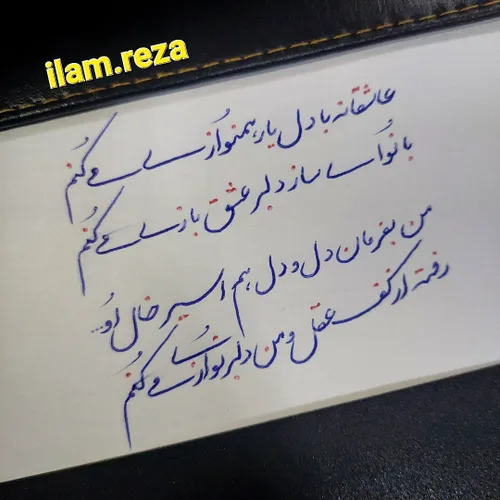 ilam.reza
عاشقانه با دل یار همنوازی می کنم
با نوای ساز دلبر عشق بازی می کنم
من بفرمان دل و دل هم اسیر خال او..
رفته از کف عقل و من دلبر نوازی می کنم